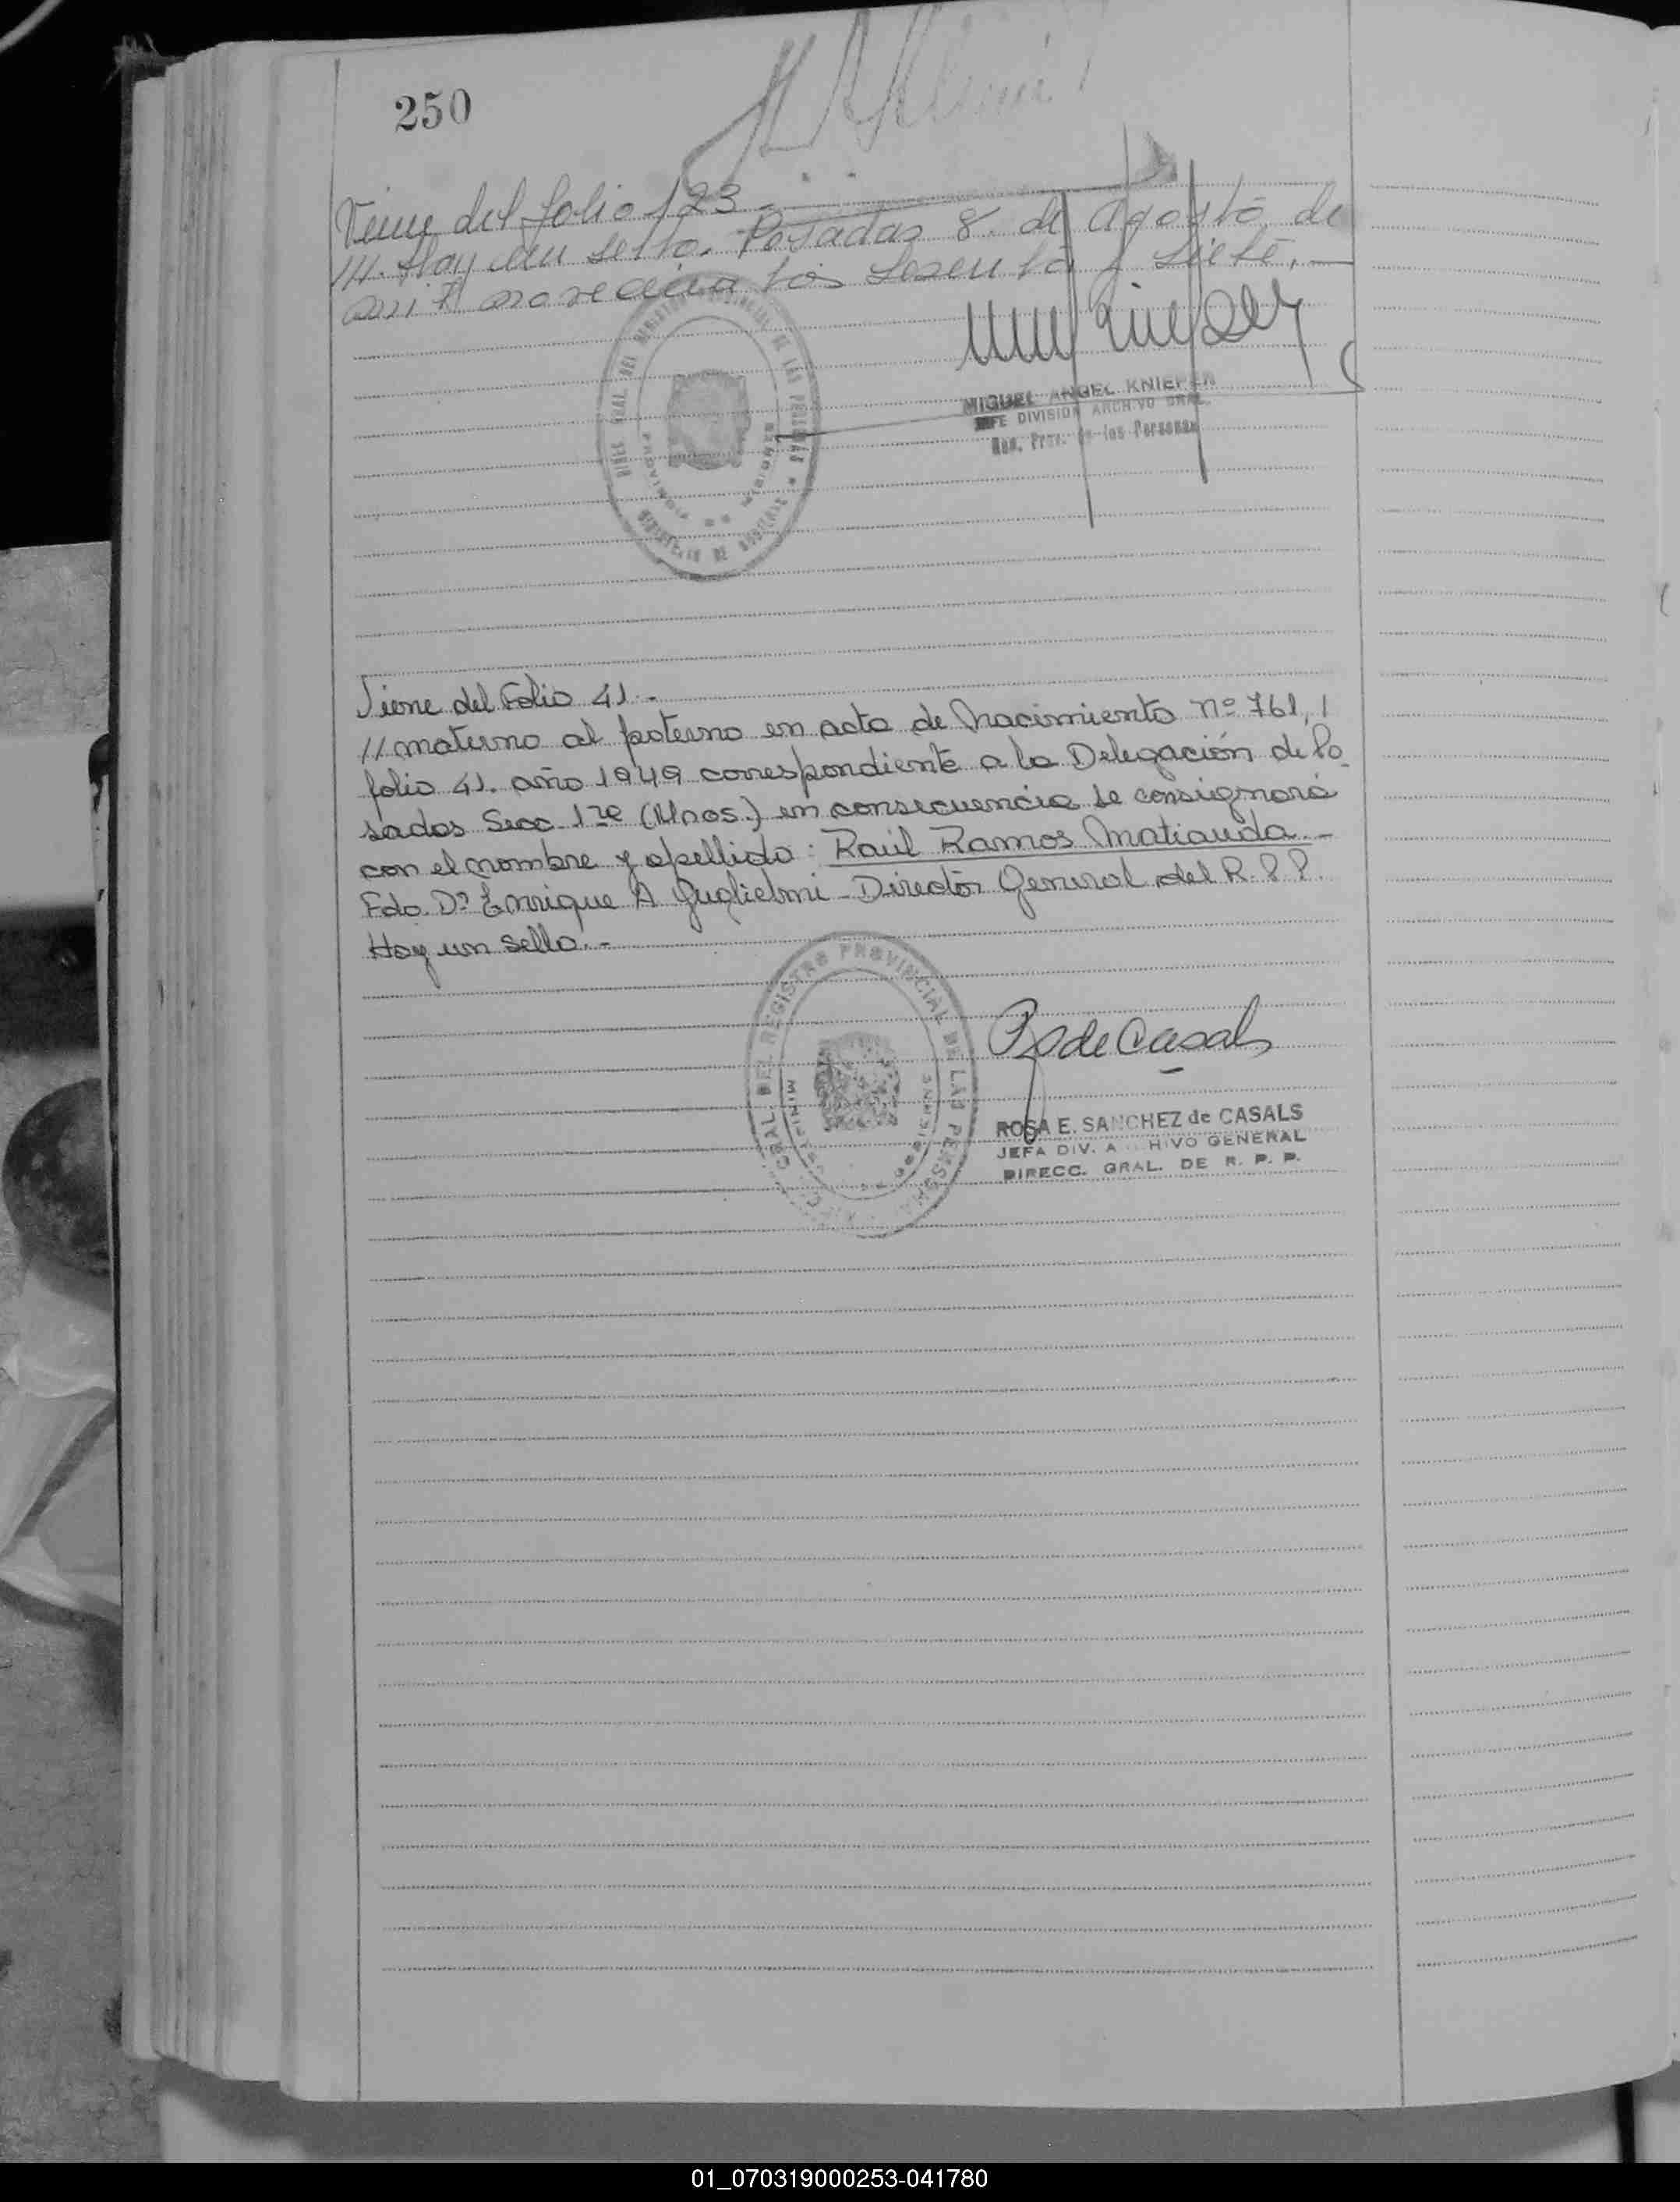 250
Viene del folio 123.-
///. Hay un sello. Posadas 8. de Agosto de
mil novecientos sesenta y siete.-
DIREC. GRAL. DEL REGISTRO PROVINCIAL DE LAS PERSONAS
PROVINCIA DE MISIONES
MIGUEL ANGEL KNIEPER
JEFE DIVISION ARCHIVO GRAL.
Reg. Prov. de las Personas
Viene del Folio 41.-
// materno al paterno en acta de Nacimiento nº 761, /
folio 41. año 1949 correspondiente a la Delegación de Po-
sadas Secc 1ra en consecuencia se consignará
con el nombre y apellido: Raúl Ramos Matiauda.-
Fdo. Dº Enrique A Guglielmi - Director General del R.P.P.
Hay un sello.-
GRAL. DEL REGISTRO PROVINCIAL DE LAS PERSONAS
R de Casals
ROSA E. SANCHEZ de CASALS
JEFA DIV. A HIVO GENERAL
DIRECC. GRAL. DE R. P. P.
01_070319000253-041780